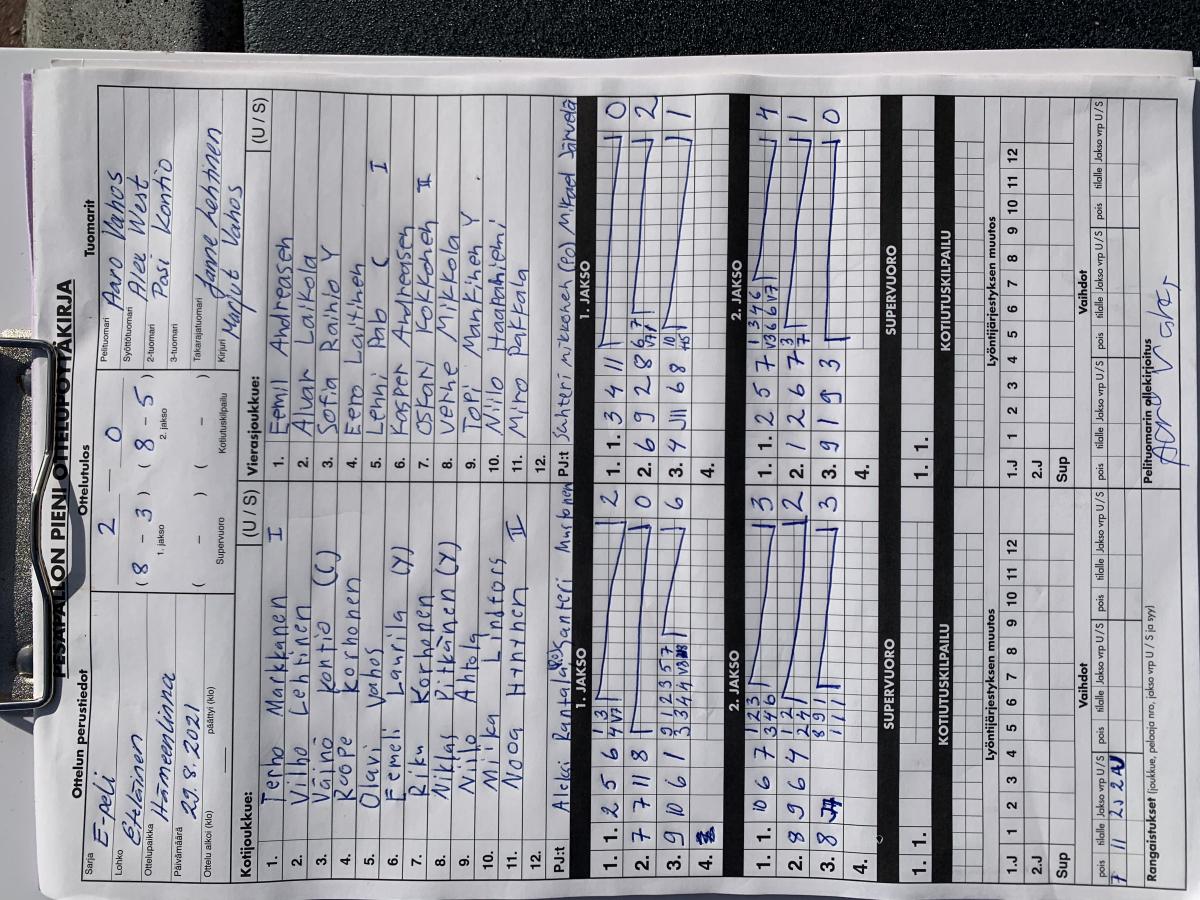 PESÄPALLON PIENI OTTELUPÖYTÄKIRJA
Ottelun perustiedot
Sarja E-peli
Lohko Eteläinen
Ottelupaikka Hämeenlinna
Päivämäärä 29.8.2021
Ottelu alkoi (klo) päättyi (klo)
Ottelutulos
2 – 0
( 8 – 3 ) ( 8 – 5 )
1. jakso 2. jakso
( – ) ( – )
Supervuoro Kotiutuskilpailu
Tuomarit
Pelituomari Aaro Vahos
Syöttötuomari Alex West
2-tuomari Pasi Kontio
3-tuomari
Takarajatuomari Janne Lehtinen
Kirjuri Marjut Vahos
Kotijoukkue: (U / S)
1. Terho Markkanen I
2. Vilho Lehtinen
3. Väinö Kontio (C)
4. Roope Korhonen
5. Olavi Vahos
6. Eemeli Laurila (Y)
7. Riku Korhonen
8. Niklas Pitkänen (Y)
9. Niilo Ahtola
10. Miika Linfors
11. Nooa Hyntynen II
12.
PJ:t Aleksi Rantala Santeri Mustonen
Vierasjoukkue: (U / S)
1. Eemil Andreasen
2. Alvar Laikola
3. Sofia Rainio Y
4. Eero Laitinen
5. Lenni Pab C I
6. Kasper Andreasen
7. Oskari Kokkonen II
8. Verne Mikkola
9. Topi Mankinen Y
10. Niilo Haapaniemi
11. Miro Pakkala
12.
PJ:t Sahteri mikkonen (eo) Mikael Järvelä
1. JAKSO
1. 1. 2 5 6 1 3 4 V7 2
2. 7 7 11 8 0
3. 9 10 6 1 6
4.
1. JAKSO
1. 1. 3 4 11 0
2. 6 9 2 8 6 7 2
3. 4 11 6 8 10 1
4.
2. JAKSO
1. 1. 10 6 7 1 2 3 3 4 6 3
2. 8 9 6 4 1 2 2 4 2
3. 8 8 9 1 1 1 1 3
4.
2. JAKSO
1. 1. 2 5 7 1 3 4 6 V3 6 6 V7 4
2. 1 2 6 7 3 7 1
3. 9 1 9 3 0
4.
SUPERVUORO
1. 1.
SUPERVUORO
1. 1.
KOTIUTUSKILPAILU
KOTIUTUSKILPAILU
Lyöntijärjestyksen muutos
1.J 1 2 3 4 5 6 7 8 9 10 11 12
2.J
Sup
Lyöntijärjestyksen muutos
1.J 1 2 3 4 5 6 7 8 9 10 11 12
2.J
Sup
Vaihdot
pois tilalle Jakso vrp U / S pois tilalle Jakso vrp U / S pois tilalle Jakso vrp U / S
7 11 2J 2
Vaihdot
pois tilalle Jakso vrp U / S pois tilalle Jakso vrp U / S pois tilalle Jakso vrp U / S
Rangaistukset (joukkue, pelaaja nro, jakso vrp U / S ja syy)
Pelituomarin allekirjoitus
Aaro Vahos